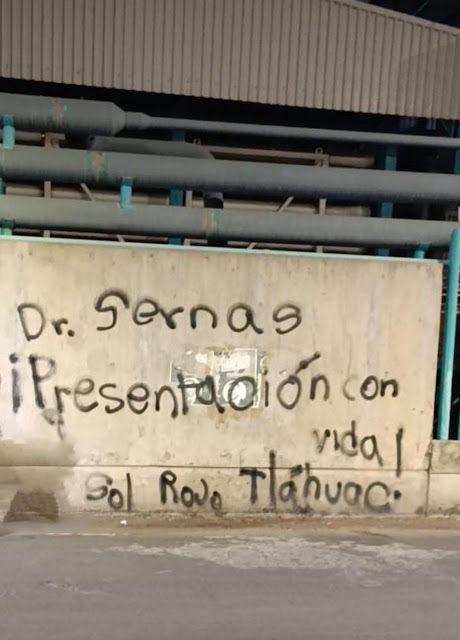 Dr. Sernas
¡Presentación con
vida!
Sol Rojo Tláhuac.